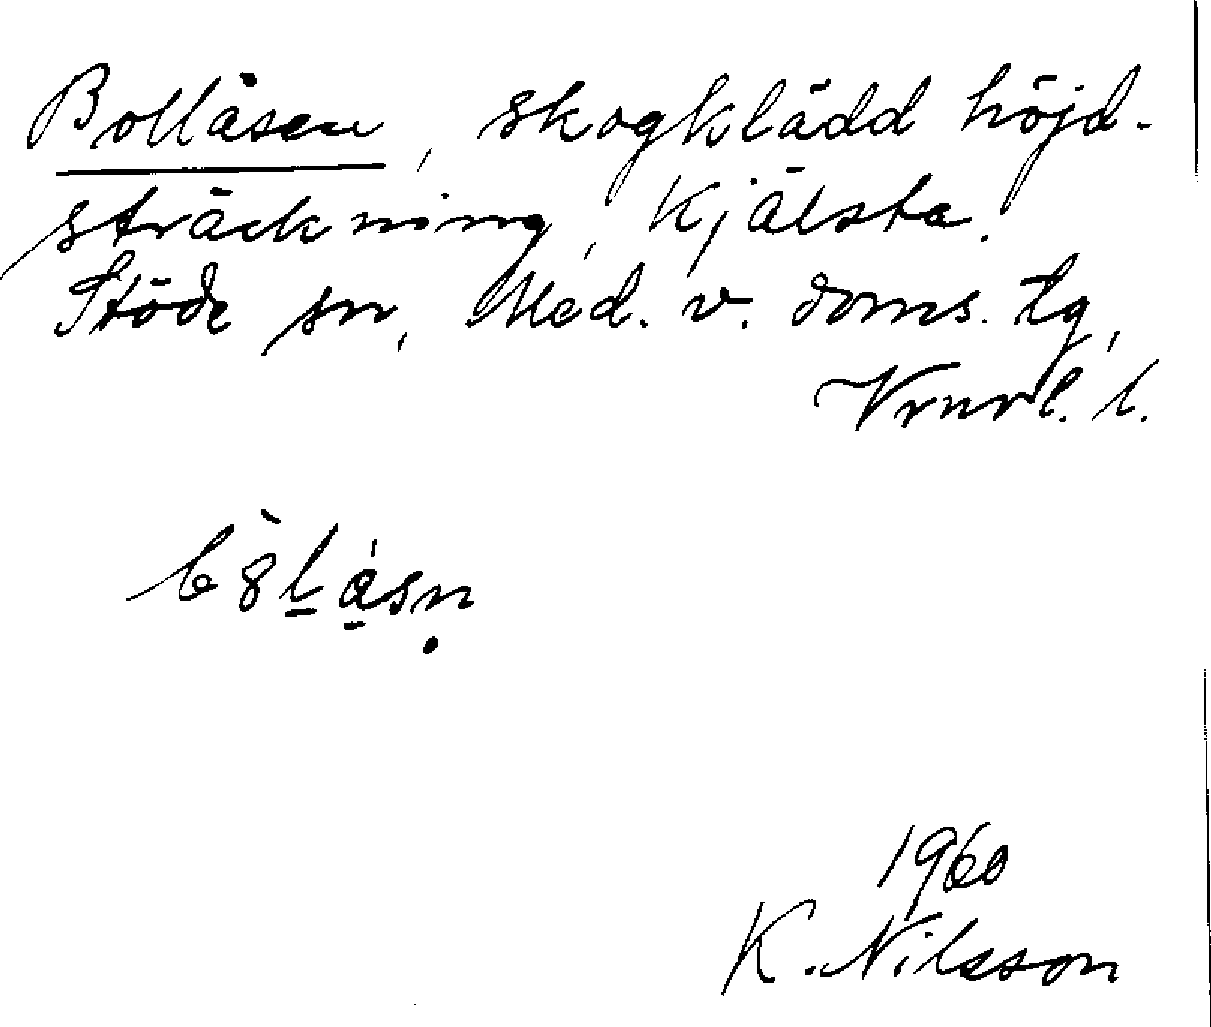 Bollåsen, skogklädd höjd-
sträckning, Kjälsta.
Stöde sn, Med. v. doms. tg,
Vrnrl. l.
b8̀låsṇ
1960
K. Nilsson